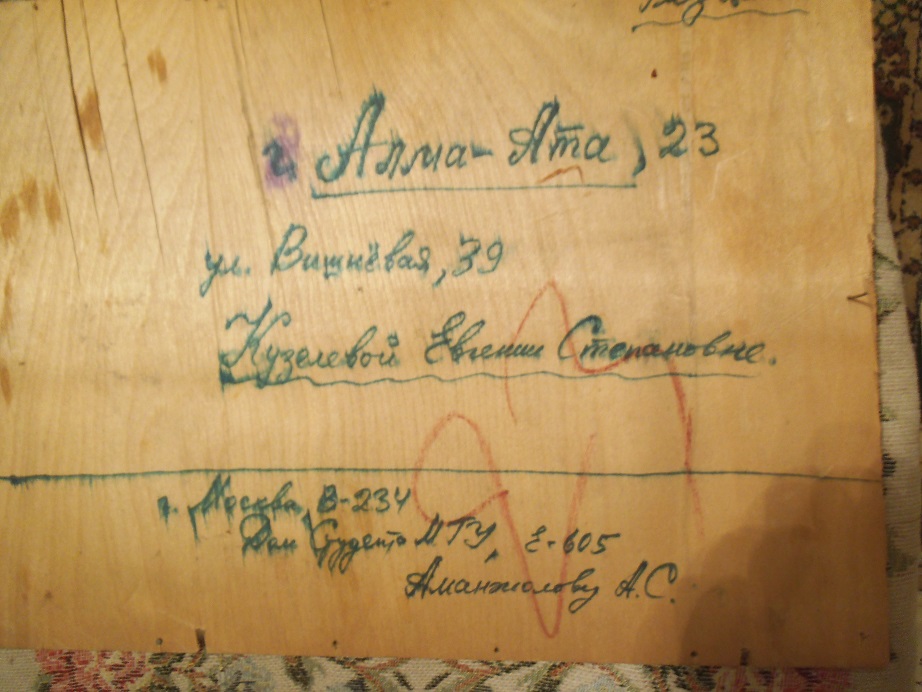 г. Алма-Ата, 23
ул. Вишнёвая, 39
Кузелевой Евгении Степановне.
г. Москва, В-234
Дом Студента МГУ, Е-605
Аманжолову А.С.